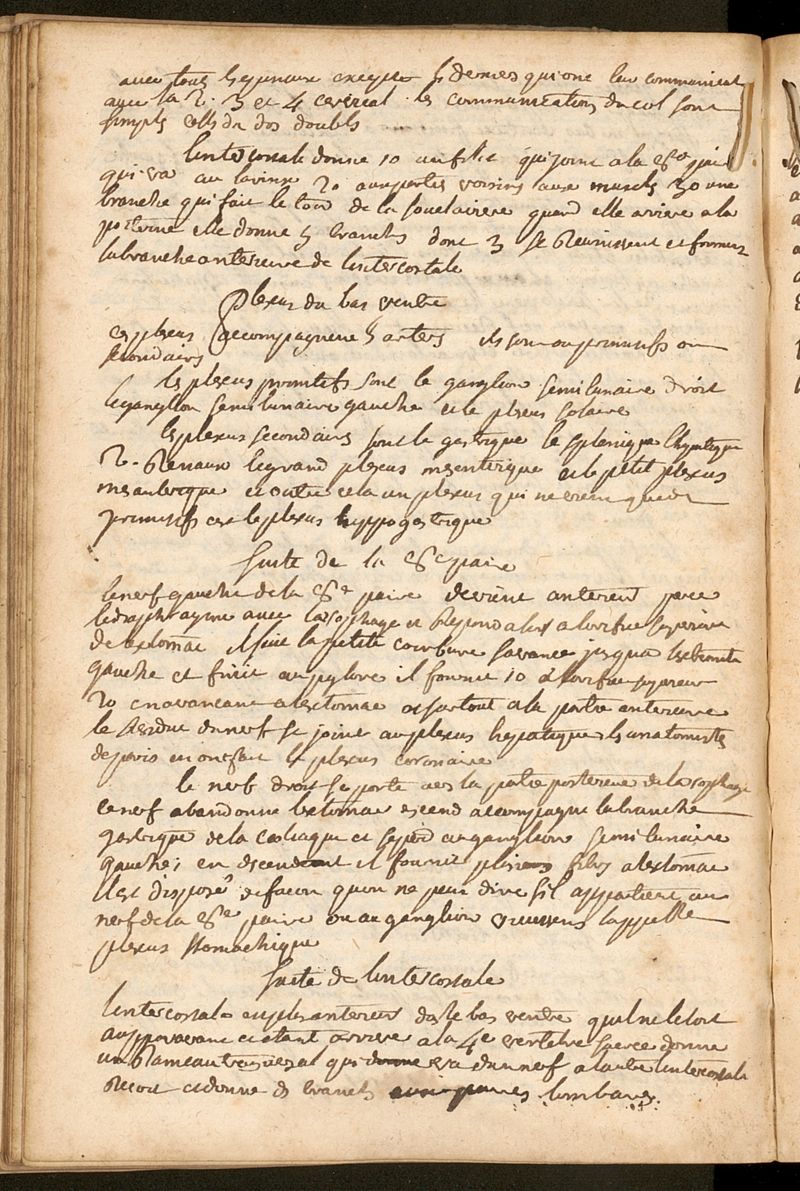 avec tous les spinaux excepté les derniers qui ont leur communication
avec la 2. 3 et 4 cervical. les communications du col sont
simples celles du dos doubls
lintercostale donne 1o un filet qui joint a la 8e paire
qui va au larinx 2o aux parties voisins aux muscls 3o une
branche qui fait le tour de la souclaviere quand elle arrive a la
poitrine elle donne 5 branchs dont 3 se reunissent et forment
la branche anterieure de lintercostale
plexus du bas ventre
ces plexus accompagnent ls arters ils sont ou primitifs ou
secondairs
les plexus primitifs sont le ganglion semilunaire droit
le ganglion semilunaire gauche et le plexus solaire
les plexus secondairs sont le gastrique le splenique lhepatique
2. renaux le grand plexus mesenterique et le petit plexus
mesenterique et outre cela un plexus qui ne vient que des
primitifs cest le plexus hyppogastrique
suite de la 8e paire
le nerf gauche de la 8e paire devient anterieur perce
le diaphragme avec lesophage et repond alors a lorifice superieur
de lestomac il suit la petite courbure savance jusqua lextremité
gauche et finit au pylore il fournit 1o a lorifice superieur
2o en avancant a lestomac et surtout a la partie anterieure
le residu du nerf se joint au plexus hepatique ls anatomistes
depuis en ont fait le plexus coronaire
le nerf droit se porte vers la partie posterieure de lesophage
ce nerf abandonne lestomac descend accompagne la branche
gastrique de la coeliaque et se perd au ganglion semilunaire
gauche; en descendant il fournit plusieurs filets a lestomac
il est disposé de facon quon ne peut dire sil appartient au
nerf de la 8e paire ou au ganglion vieussens lappelle
plexus stomachique
suite de lintercostale
lintercostale est plus anterieur dans le bas ventre quil ne letoit
auppravant et etant arrivé a la 4e vertebre sacré donne
un rameau transversal qui va dun nerf a lautre lintercostale
recoit et donne ds branchs aux paires lombaires.